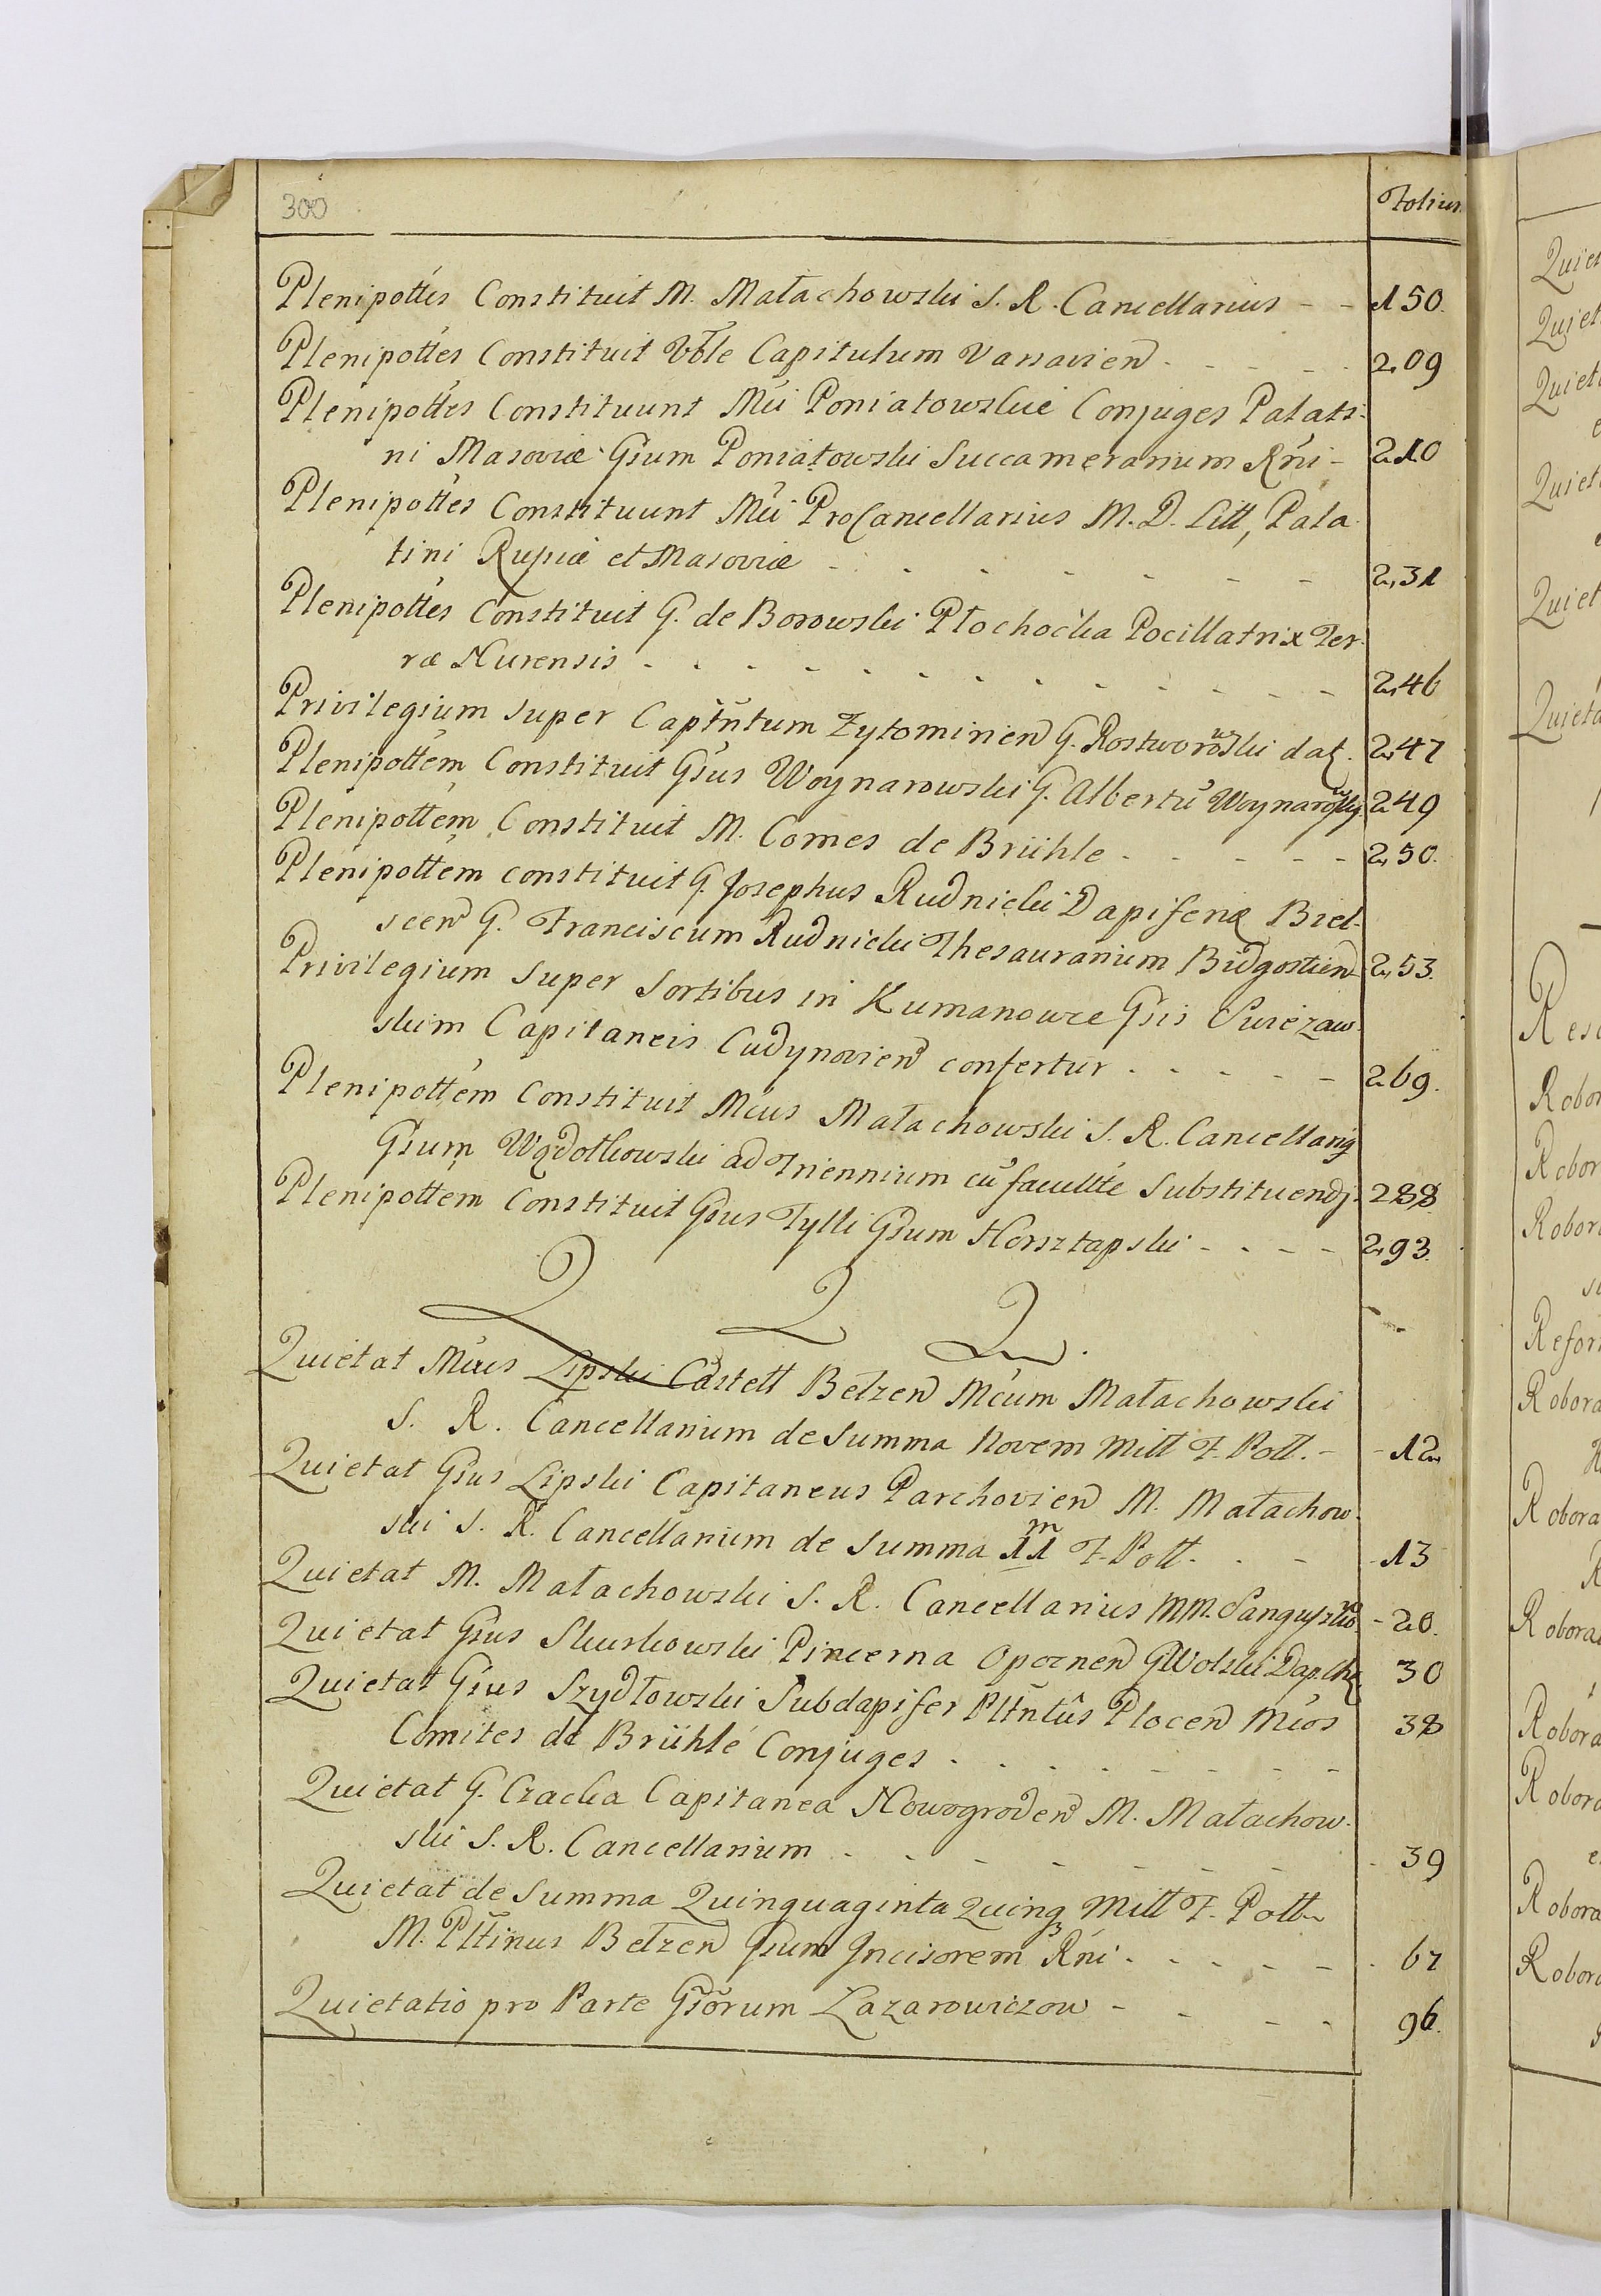 300
Folium
Plenipottes Constituit M. Małachowski S. R. Cancellarius - - 150.
Plenipottes Constituit Vble Capitulum Varsavien - - - - 209
Plenipottes Constituunt Mci Poniatowskie Conjuges Palati-
ni Masoviæ Gsum Poniatowski Succamerarium Rni - 210
Plenipottes Constituunt Mci ProCancellarius M. D. Litt, Pala
tini Russiæ et Masoviæ - - - - - - - 231
Plenipottes Constituit G. de Borowski Płochocka Pocillatrix Ter-
ræ Nurensis - - - - - - - - - - - - 246
Privilegium super Captntum Zytomirien G. Rostworowski datȩ. 247
Plenipottem Constituit Gsus Woynarowski G. Albertu Woynarowsky 249
Plenipottem Constituit M. Comes de Brühle - - - - - 250.
Plenipottem constituit G. Josephus Rudnicki Dapiferȩ Biel-
scen G. Franciscum Rudnicki Thesaurarium Bidgostien 253.
Privilegium super Sortibus in Kumanowce Gsis Swiezaw-
skim Capitaneis Cudynovien confertur - - - - - 269.
Plenipottem Constituit Mcus Małachowski S. R. Cancellariȩ
Gsum Wądołkowski ad Triennium cu facultte Substituendi. 288
Plenipottem Constituit Gsus Tylli Gsum Horsztapski - - - - 293.
Q Q Q.
Quietat Mcus Lipski Castell Bełzen Mcum Małachowski
S. R. Cancellarium de Summa Novem Mill F. Poll. - - 12
Quietat Gsus Lipski Capitaneus Parchovien M. Małachow-
ski S. R. Cancellarium de Summa 11m F. Poll. - - - 13
Quietat M. Małachowski S. R. Cancellarius MM. Sanguszko - 20.
Quietat Gsus Skurkowski Pincerna Opocnen G Wolski Dap. Chȩ 30
Quietat Gsus Szydłowski Subdapifer Pltntus Plocen Mcos 38
Comites de Brühle Conjuges - - - - - - - -
Quietat G. Czacka Capitanea Nowogroden M. Małachow-
ski S. R. Cancellarium - - - - - - - - 39
Quietat de Summa Quinquaginta Quinq3 Mill F. Poll
M. Pltinus Bełzen Gsum Incisorem Rni - - - - - - 67
Quietatio pro Parte Gsorum Lazarowiczow - - - - 96.